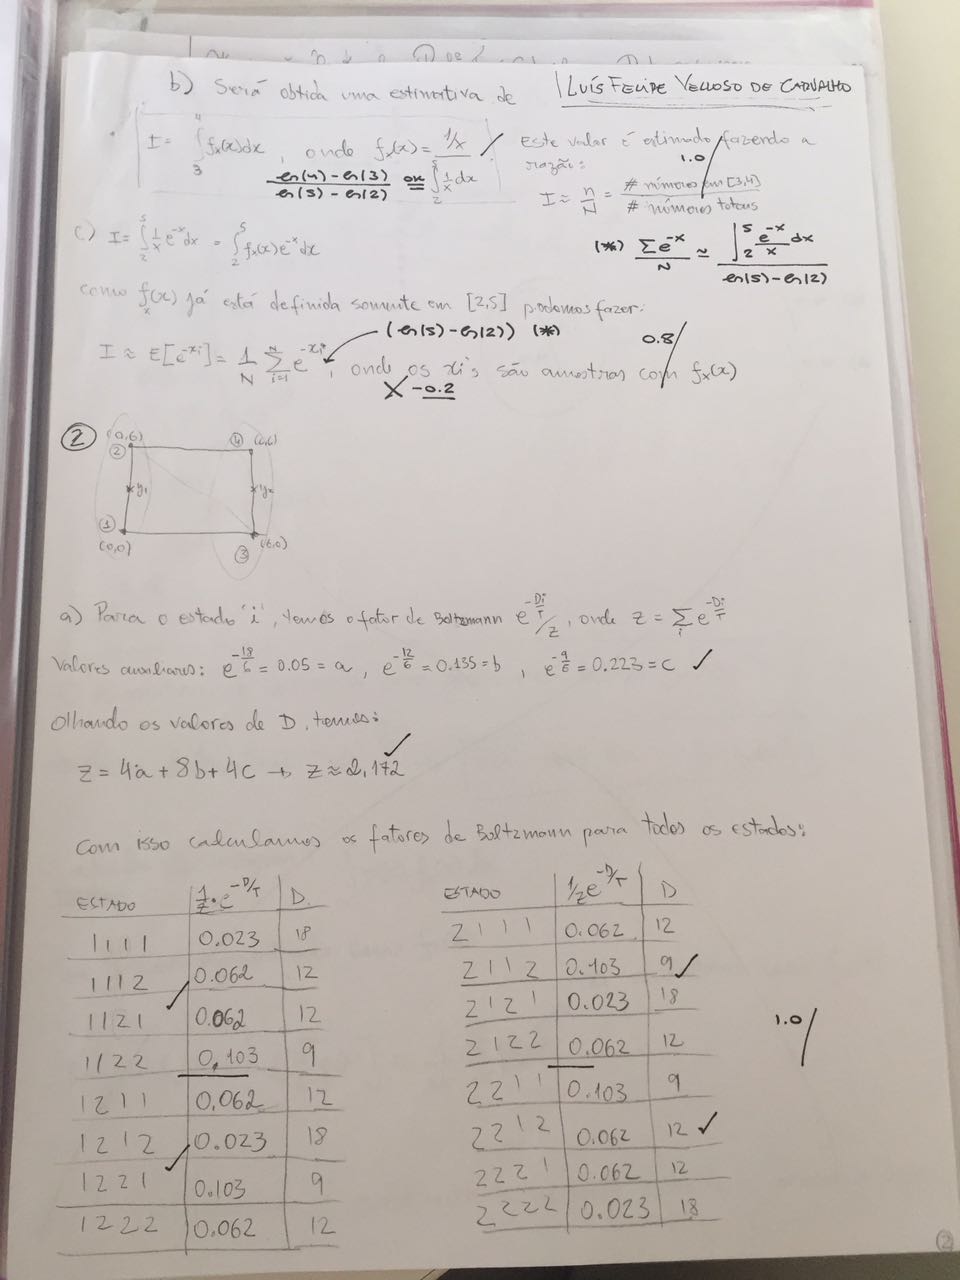 b) Será obtida uma estimativa de
LUÍS FELIPE VELLOSO DE CARVALHO
I = ∫₃⁴ fx(x)dx, onde fx(x) = 1/x / ∫₂⁵ 1/x dx
Este valor é estimado fazendo a razão:
1.0
ln(4)-ln(3) / ln(5)-ln(2) OK
I ≈ n/N = # números em [3,4] / # números totais
c) I = ∫₂⁵ 1/x e^-x dx = ∫₂⁵ fx(x) e^-x dx
(*) Σe^-x / N ≃ ∫₂⁵ e^-x/x dx / ln(5)-ln(2)
como fx(x) já está definida somente em [2,5] podemos fazer:
(ln(5)-ln(2)) (*)
0.8
I ≈ E[e^-xi] = 1/N Σ_{i=1}^N e^-xi, onde os xi's são amostras com fx(x)
X -0.2
2
(0,6) 2 4 (6,6)
y1 y2
1 (0,0) 3 (6,0)
a) Para o estado 'i', temos o fator de Boltzmann e^-Di/T / Z, onde Z = Σ_i e^-Di/T
Valores auxiliares: e^-18/6 = 0.05 = a, e^-12/6 = 0.135 = b, e^-9/6 = 0.223 = c ✓
Olhando os valores de D, temos:
Z = 4a + 8b + 4c → Z ≈ 2,172 ✓
Com isso calculamos os fatores de Boltzmann para todos os estados:
ESTADO 1/Z · e^-D/T D
1111 0.023 18
1112 0.062 12
1121 0.062 12
1122 0.103 9
1211 0.062 12
1212 0.023 18
1221 0.103 9
1222 0.062 12
ESTADO 1/Z e^-D/T D
2111 0.062 12
2112 0.103 9 ✓
2121 0.023 18
2122 0.062 12
2211 0.103 9
2212 0.062 12 ✓
2221 0.062 12
2222 0.023 18
1.0
2